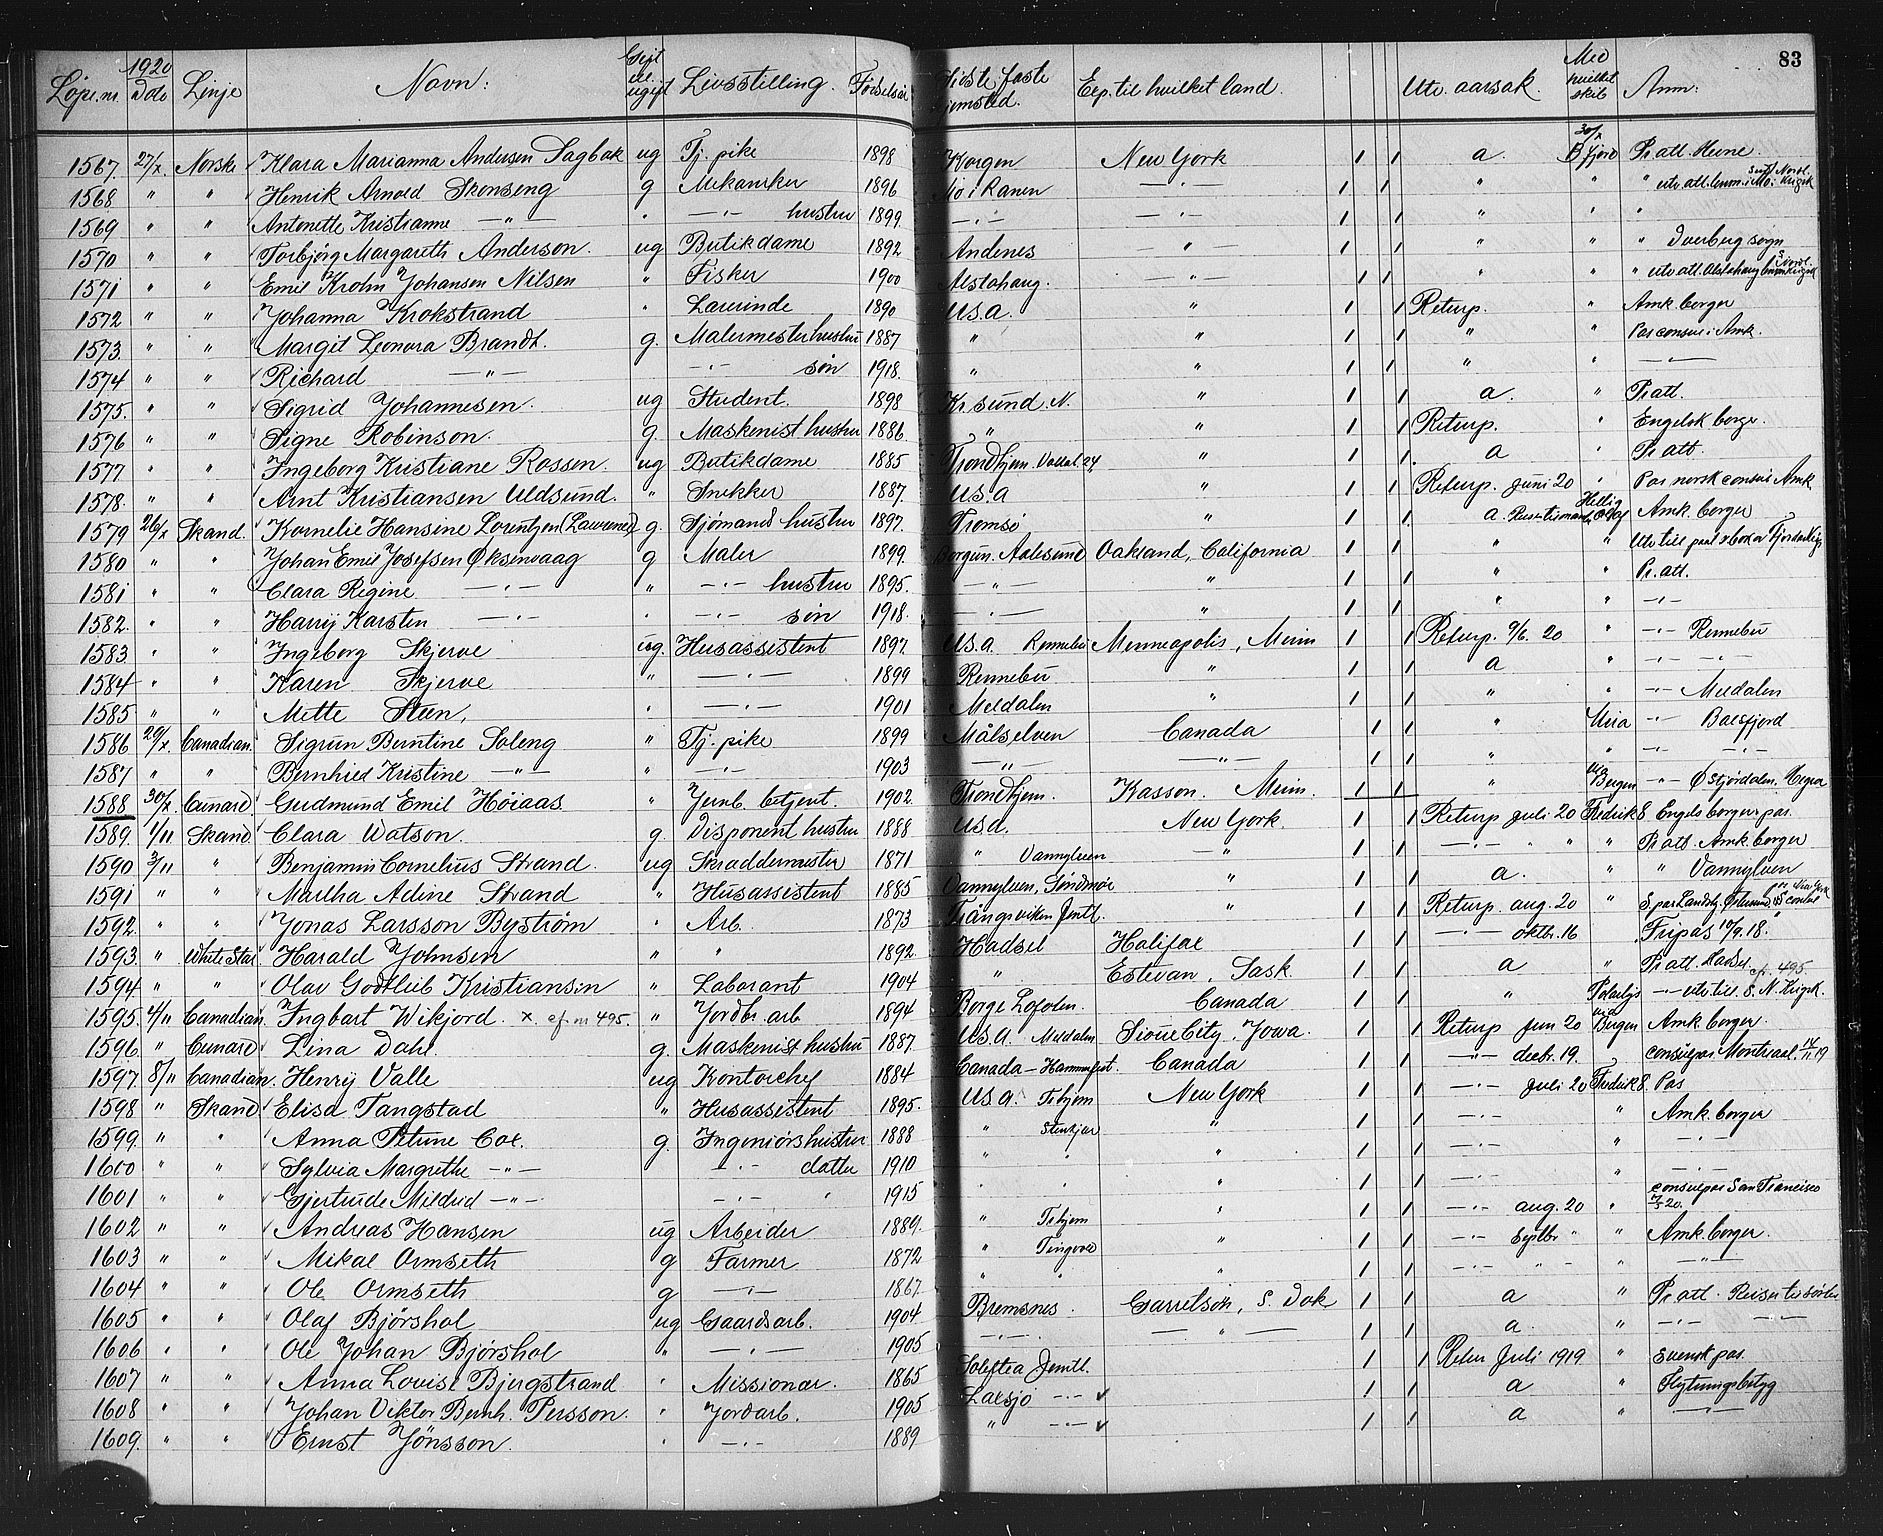 83
Löpe.nr. 1920 Dato Linje Navn: Gift el. ugift Livsstilling. Födselsår Sidste faste hjemsted. Eep. til hvilket land. Utv. aarsak. Med hvilket skib Anm:
1567. 27/x. Norske Klara Marianna Andersen Sagbak ug Tj. pike 1898 Korgen New York 1 1 a. 30/x B.fjord Pr att. Hevne.
1568 " " Henrik Arnold Skonseng g Mekaniker 1896 Mo i Ranen —"— 1 1 " " " utv. att. Mo i
1569 " " Antonette Kristianne —"— " —"— hustru 1899. —"— —"— 1 1 " " "
1570 " " Torbjørg Margareth Anderson. ug Butikdame 1892 Andenes " 1 1 " " " Dverberg sogn
1571 " " Emil Krohn Johansen Nilsen " Fisker 1900 Alstahaug. —"— 1 1 " " " utv att. Alstahaug
1572 " " Johanna Krokstrand " 1890 U.S.a. " 1 1 Returp. " Amk. borger
1573. " " Margit Leonora Brandt. g. Malermester hustru 1887 " " 1 1 " " Pas consul i Amk.
1574 " " Richard —"— —"— søn 1918. " " 1 1 " " —"—
1575. " " Sigrid Johannesen. ug Student. 1898 Kr.sund. N. " 1 1 a. " Pr att.
1576 " " Signe Robinson. g. Maskenist hustru 1886 " " 1 1 Returp. " Engelsk borger.
1577. " " Ingeborg Kristiane Rossen. ug Butikdame 1885 Trondhjem. 24 " 1 1 a " Pr att.
1578. " " Arnt Kristiansen Uldsund. " Snekker 1887. U.S.a " 1 1 Returp. Juni 20 " Pas norsk consul i Amk.
1579 26/x Skand. Kornelie Hansine Lorentzen (Lawrence) g. Sjömand hustru 1897. Tromsø " 1 1 a Hellig Olaf Amk. borger
1580 " " Johan Emil Josefsen Øksenvaag g Maler 1899. Borgun. Aalesund Oakland, California 1 1 " " Utv till
1581 " " Clara Regine —"— " —"— hustru 1895. —"— " 1 1 " " Pr. att.
1582. " " Harry Karsten —"— " —"— søn 1918. —"— " 1 1 " " —"—
1583. " " Ingeborg Skjerve ug. Husassistent 1897. U.S.a. Rennebu Menneapolis, Minn 1 1 Returp. 9/6. 20 " —"— Rennebu
1584 " " Karen Skjerve " —"— 1899 Rennebu " 1 1 a " —"— —"—
1585 " " Mette Steen, " —"— 1901 Meldalen " 1 1 " " —"— Meldalen
1586 29/x. Canadian. Sigrun Berntine Soleng " Tj. pike 1899 Målselven Canada 1 1 " Mira —"— Balsfjord
1587 " " Bernhied Kristine —"— " —"— 1903 —"— —"— 1 1 " " —"— —"—
1588 30/x Cunard Gudmund Emil Höiaas " Jernb. betjent. 1902. Trondhjem. Kasson. Minn. 1 1 " via Bergen —"— Ø Stjørdalen. Hegra
1589. 1/11 Skand. Clara Watson. g. Disponent hustru 1888 U.S.a. New York. 1 1 Returp Juli 20 Fredrik 8 Engelsborgers pas.
1590 3/11 " Benjamin Cornelius Strand. ug Skraddermester 1871 " Vannylven —"— 1 1 —"— " " " Pr att. Amk. borger
1591 " " Martha Adine Strand " Husassistent 1885 Vannylven, Söndmöe " 1 1 a. " " Vannylven
1592. " " Jonas Larsson Byström " Arb. 1873 Trångsviken Jemtl. " 1 1 Returp. aug. 20 " S. pas
1593. " White Star Harald Johnsen " " 1892 Hadsel Halifax 1 1 —"— oktbr. 16 Fripas 17/9. 18.
1594 " " Olav Godtlieb Kristiansen " Laborant 1904 " Estevan. Sask. 1 1 a " Pr att. Hadsel cfr. 495.
1595. 4/11 Canadian. Ingbart Wikjord. x. cf. nr 495. " Jordbr. arb 1894 Borge Lofoten. Canada 1 1 " Polarlys —"— utv till. S. N. Krigsk.
1596. " Cunard Lina Dahl g. Maskenist hustru 1887. U.S.a. Meldalen Sioux City. Jowa. 1 1 Returp Jun 20 via Bergen Amk. borger.
1597. 8/11 Canadian. Henry Valle ug Kontorchef 1884 Canada – Hammerfest. Canada 1 1 —"— decbr. 19. " consulpas Montreal. 14/11. 19
1598 " Skand Elisa Tangstad " Husassistent 1895. U.S.a. Trhjem New York 1 1 —"— Juli 20 Fredrik 8. Pas
1599. " " Anna Petrine Coe. g. Ingeniörshustru 1888 " Stenkjær " 1 1 —"— " Amk. borger
1600 " " Sylvia Margrethe —"— —"— datter 1910 " " " 1 1 —"— " —"—
1601 " " Gjertrude Mildred —"— —"— " 1915 " " " 1 1 —"— —"—
1602 " " Andreas Hansen ug Arbeider 1889. " Trhjem " 1 1 —"— aug. 20 " consulpas San Francisco 7/5 20.
1603 " " Mikal Ormseth g Farmer 1872 " Tingvold " 1 1 —"— Septbr " " Amk. borger.
1604 " " Ole Ormseth g —"— 1867. " " " 1 1 —"— " " " —"—
1605 " " Olaf Bjørshol ug Gaardsarb. 1904 Bremsnes. Garretson, S. Dak 1 1 a " Pr att.
1606 " " Ole Johan Bjørshol " —"— 1905 —"—. —"— 1 1 a. " —"— —"—
1607 " " Anna Lovise Bjergstrand " Missionær. 1865 Jemtl. 1 1 Retur Juli 1919 " Svensk pas.
1608 " " Johan Viktor Bernh. Persson. " Jordarb. 1905 Laxsjö —"— ✓ 1 1 a " Flytningsbetyg
1609. " " Ernst Jönsson. " —"— 1889 " —"— ✓ 1 1 a " —"—